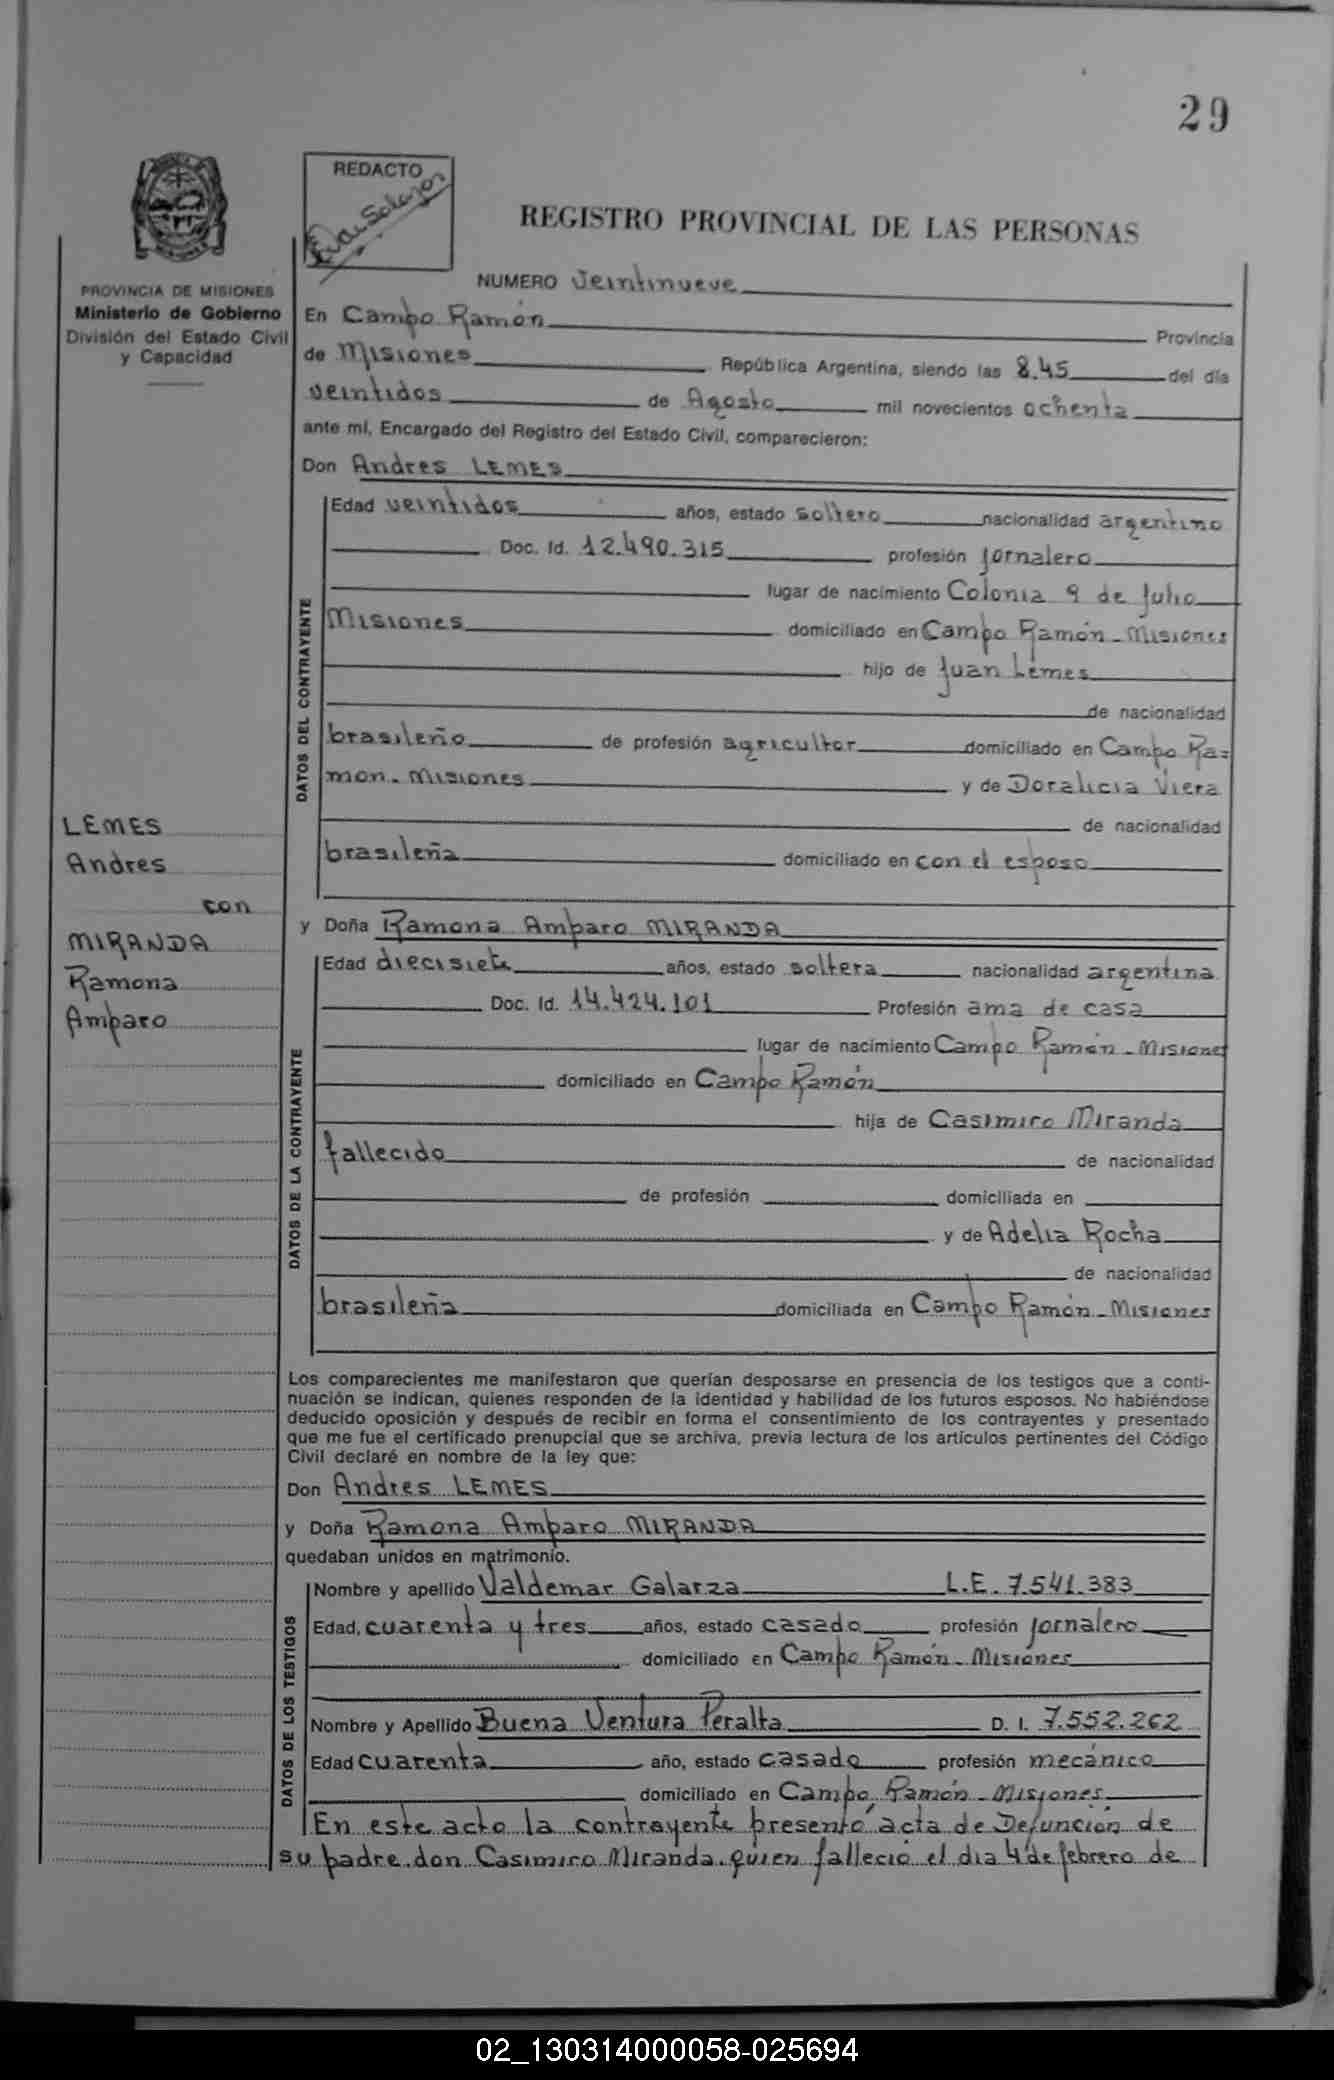 29
REDACTO
REGISTRO PROVINCIAL DE LAS PERSONAS
PROVINCIA DE MISIONES
Ministerio de Gobierno
División del Estado Civil
y Capacidad
NUMERO veintinueve
En Campo Ramón Provincia
de Misiones República Argentina, siendo las 8.45 del día
veintidos de Agosto mil novecientos ochenta
ante mí, Encargado del Registro del Estado Civil, comparecieron:
Don Andres LEMES
DATOS DEL CONTRAYENTE
Edad veintidos años, estado soltero nacionalidad argentino
Doc. Id. 12.490.315 profesión jornalero
lugar de nacimiento Colonia 9 de Julio
Misiones domiciliado en Campo Ramón - Misiones
hijo de Juan Lemes
de nacionalidad
brasileño de profesión agricultor domiciliado en Campo Ra=
mon - Misiones y de Doralicia Viera
de nacionalidad
brasileña domiciliado en con el esposo
LEMES
Andres
con
MIRANDA
Ramona
Amparo
y Doña Ramona Amparo MIRANDA
DATOS DE LA CONTRAYENTE
Edad diecisiete años, estado soltera nacionalidad argentina
Doc. Id. 14.424.101 Profesión ama de casa
lugar de nacimiento Campo Ramón - Misiones
domiciliado en Campo Ramón
hija de Casimiro Miranda
fallecido de nacionalidad
de profesión domiciliada en
y de Adelia Rocha
de nacionalidad
brasileña domiciliada en Campo Ramón - Misiones
Los comparecientes me manifestaron que querían desposarse en presencia de los testigos que a conti-
nuación se indican, quienes responden de la identidad y habilidad de los futuros esposos. No habiéndose
deducido oposición y después de recibir en forma el consentimiento de los contrayentes y presentado
que me fue el certificado prenupcial que se archiva, previa lectura de los artículos pertinentes del Código
Civil declaré en nombre de la ley que:
Don Andres LEMES
y Doña Ramona Amparo MIRANDA
quedaban unidos en matrimonio.
DATOS DE LOS TESTIGOS
Nombre y apellido Valdemar Galarza L.E. 7.541.383
Edad, cuarenta y tres años, estado casado profesión jornalero
domiciliado en Campo Ramón - Misiones
Nombre y Apellido Buena Ventura Peralta D. I. 7.552.262
Edad cuarenta año, estado casado profesión mecánico
domiciliado en Campo Ramón - Misiones
En este acto la contrayente presentó acta de Defunción de
su padre don Casimiro Miranda quien falleció el dia 4 de febrero de
02_130314000058-025694